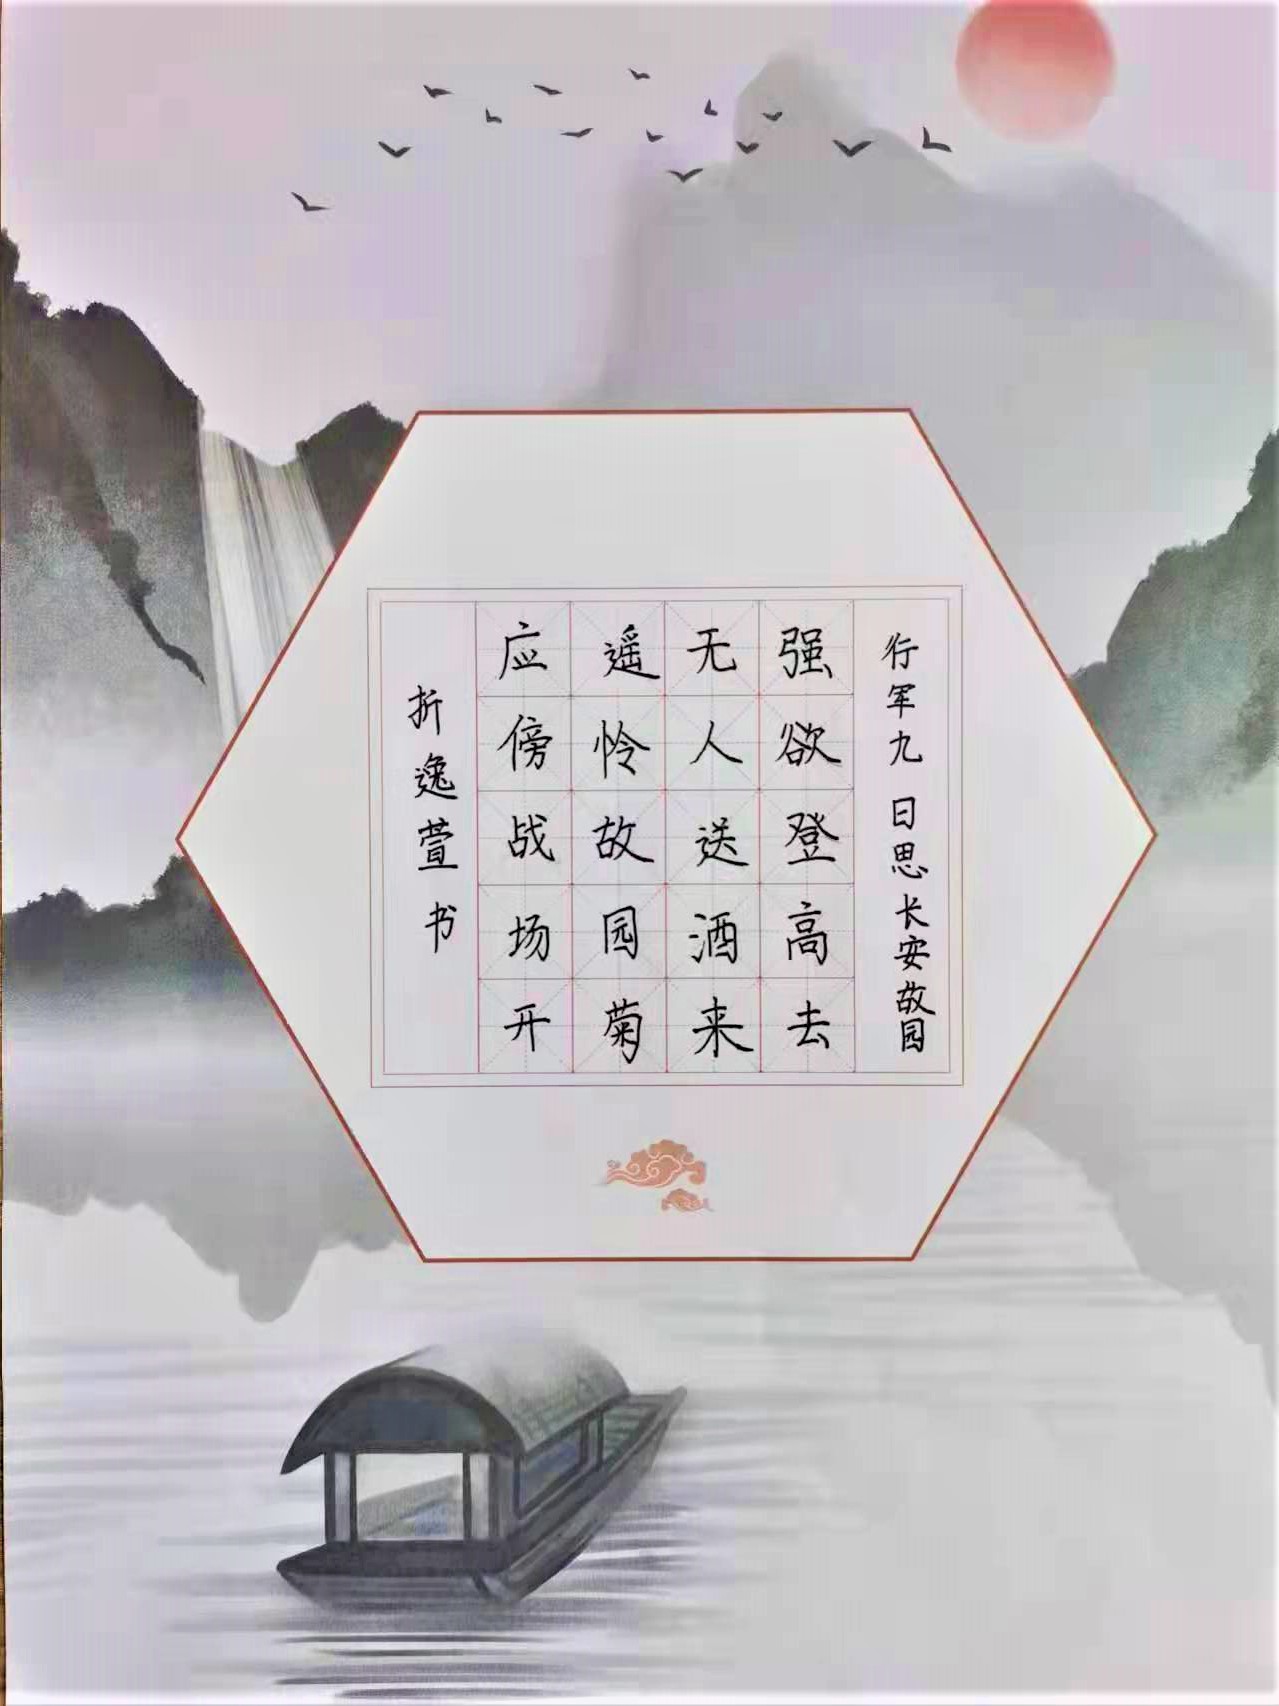 行军九日思长安故园
强欲登高去
无人送酒来
遥怜故园菊
应傍战场开
折逸萱书